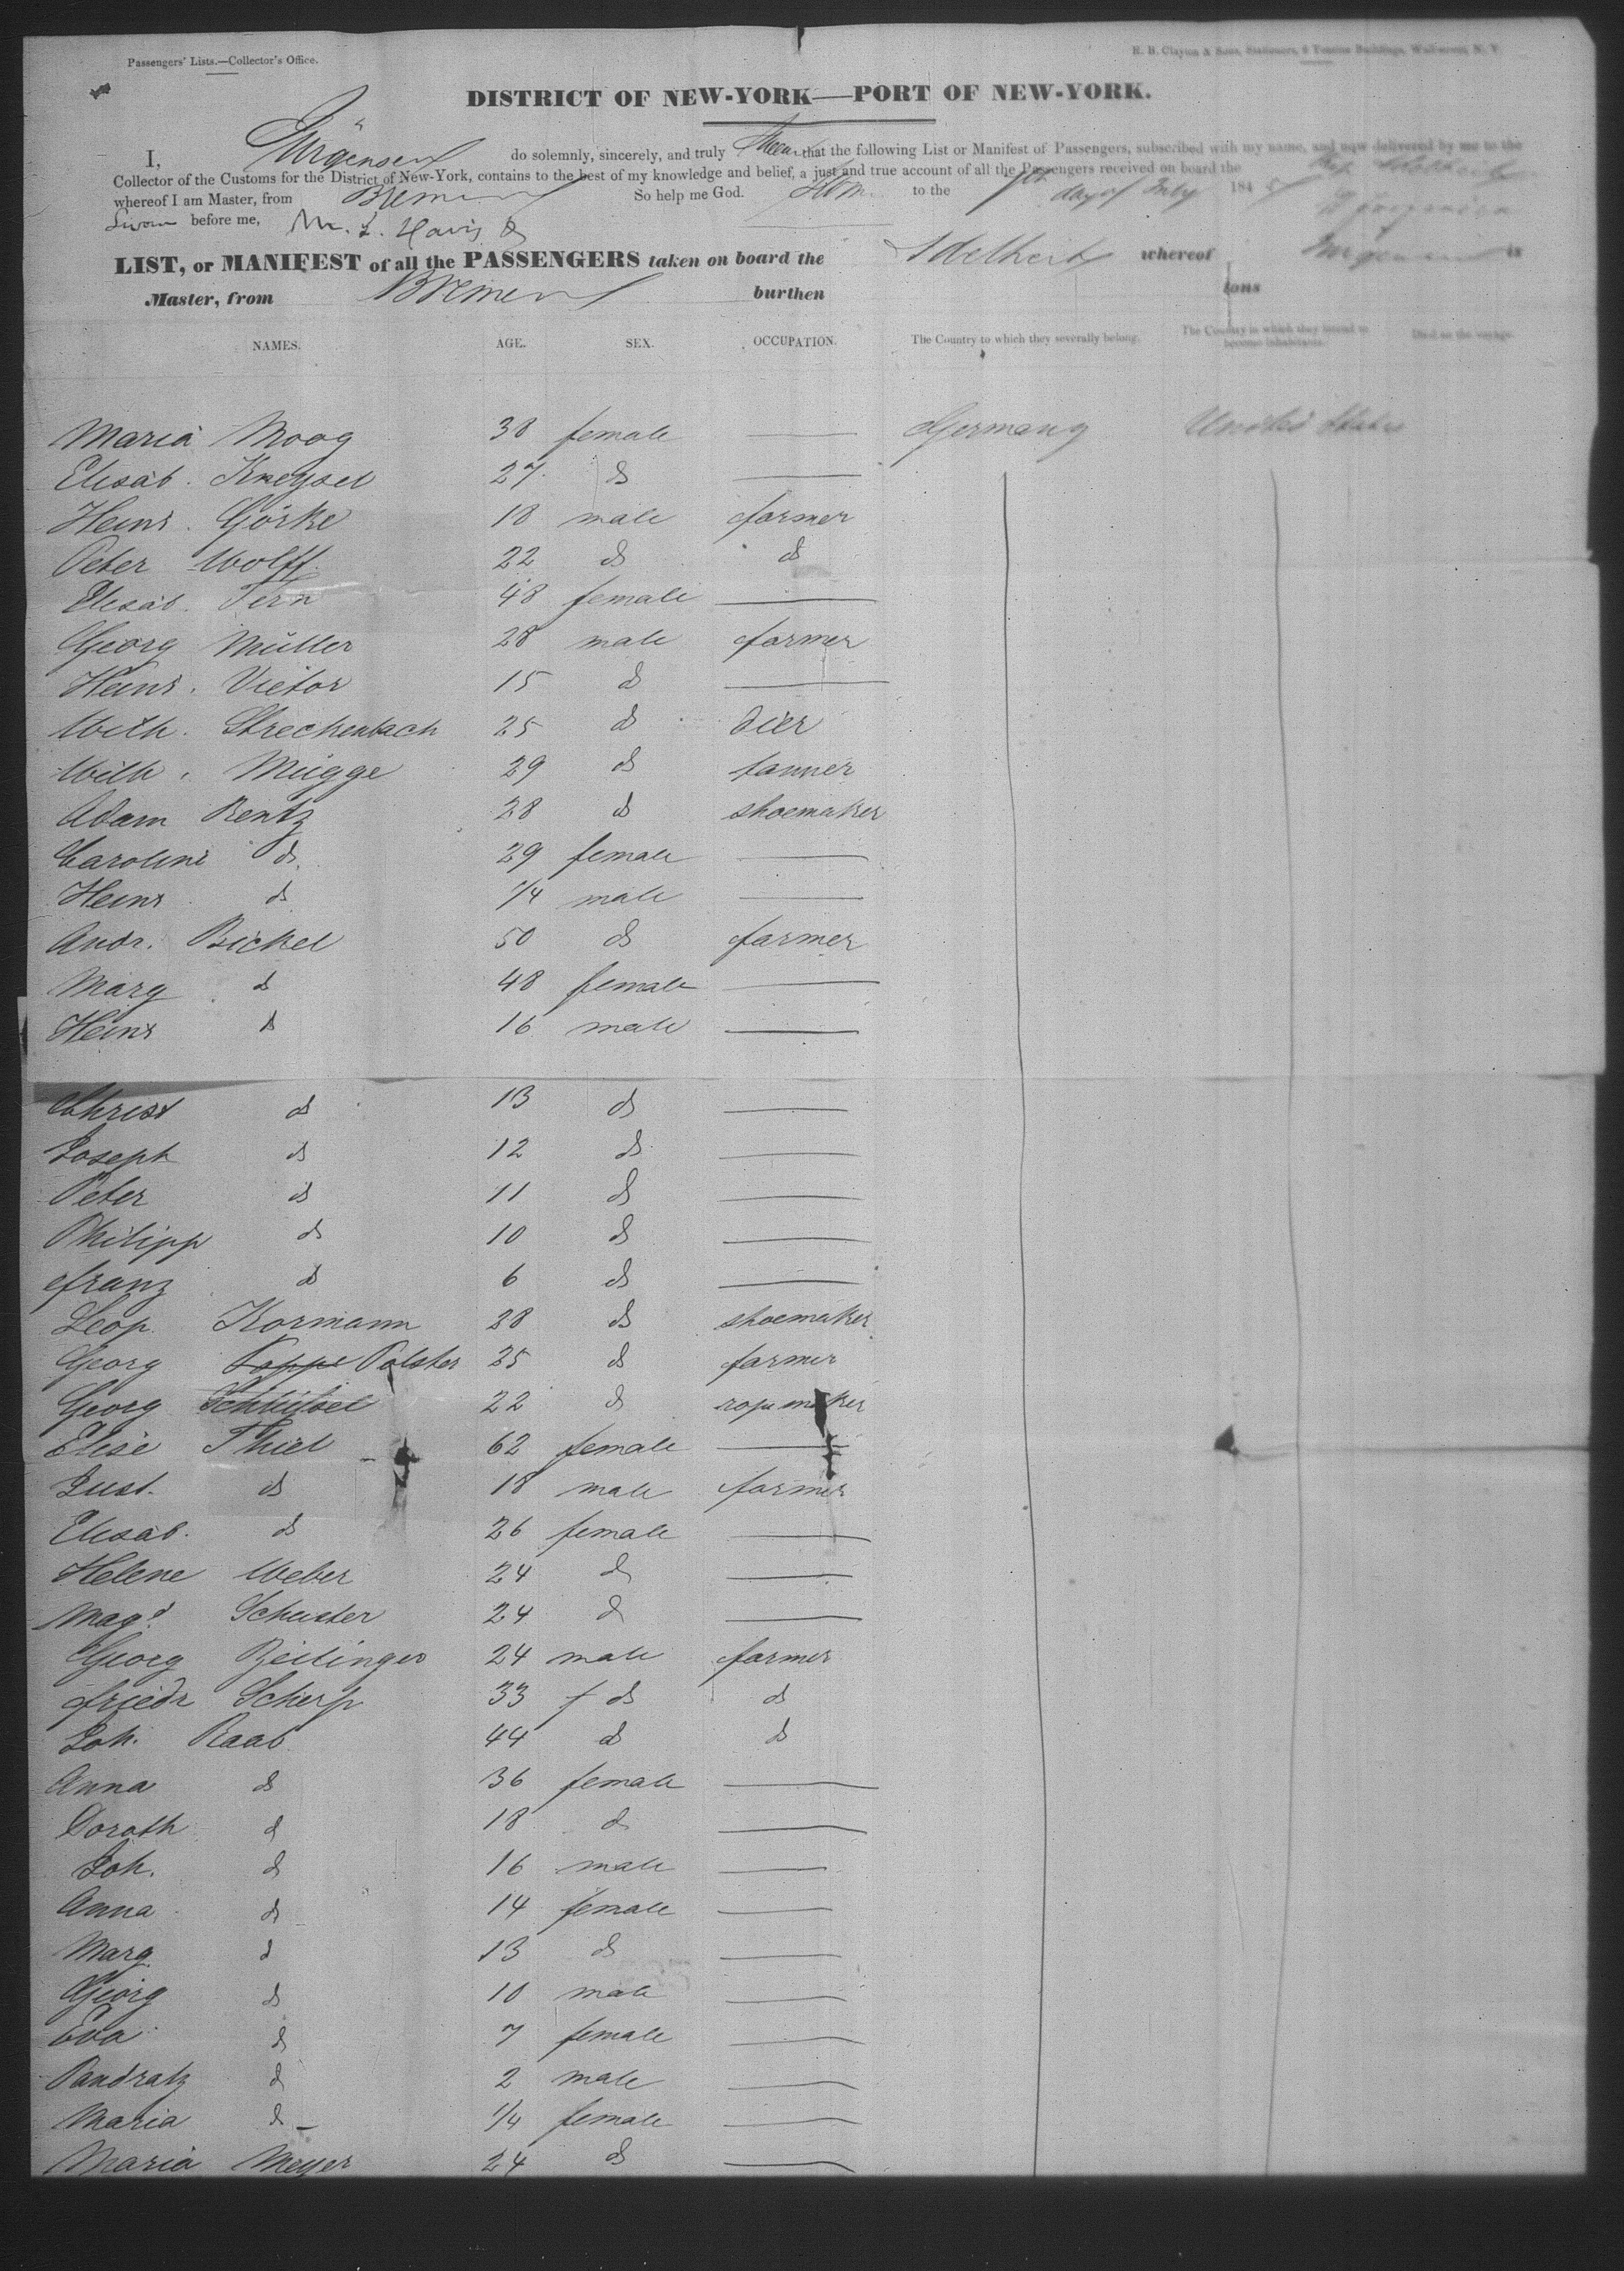 Passengers' Lists.—Collector's Office.
H. B. Clayton & Sons, Stationers, Buildings, Wall-street, N. Y.
DISTRICT OF NEW-YORK—PORT OF NEW-YORK.
I, Jürgensen do solemnly, sincerely, and truly Swear that the following List or Manifest of Passengers, subscribed with my name, and now delivered by me to the
Collector of the Customs for the District of New-York, contains to the best of my knowledge and belief, a just and true account of all the Passengers received on board the
whereof I am Master, from Bremen So help me God. to the day of July 184
Sworn before me,
LIST, or MANIFEST of all the PASSENGERS taken on board the whereof is
Master, from Bremen burthen tons
NAMES. AGE. SEX. OCCUPATION. The Country to which they severally belong. The Country in which they intend to become inhabitants. Died on the voyage.
Maria Moog 38 female — Germany United States
Elisab. Kneysel 27 do —
Heinr. Görke 18 male farmer
Peter Wolff. 22 do do
Elisab. Fern 48 female —
Georg Müller 28 male farmer
Heinr. Vietor 15 do —
Wilh. Streckenbach 25 do dier
Wilh. Mügge 29 do tanner
Adam Rentz 28 do shoemaker
Caroline do 29 female —
Heinr do 1/4 male —
Andr. Bickel 50 do farmer
Marg do 48 female —
Heinr do 16 male —
Christ do 13 do —
Joseph do 12 do —
Peter do 11 do —
Philipp do 10 do —
Franz do 6 do —
Leop. Kormann 28 do shoemaker
Georg Poppe Polster 25 do farmer
Georg 22 do ropemaker
Elise Thiel 62 female —
Just. do 18 male farmer
Elisab. do 26 female —
Helene Weber 24 do —
Magd Schuster 24 do —
Georg Beilinger 24 male farmer
Friedr Scherf 33 do do
Joh. Raab 44 do do
Anna do 36 female —
Doroth do 18 do —
Joh. do 16 male —
Anna do 14 female —
Marg do 13 do —
Georg do 10 male —
Eva do 7 female —
Pandratz do 2 male —
Maria do 1/4 female —
Maria Meyer 24 do —